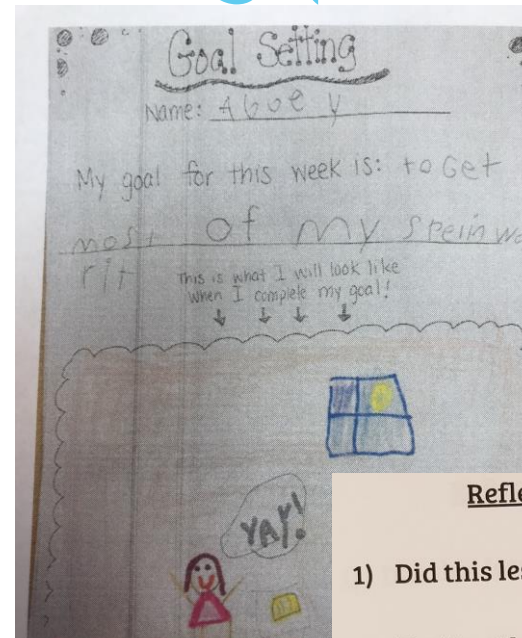 Goal Setting
Name: Abbey
My goal for this week is: to Get
most of my
rit
This is what I will look like
when I complete my goal!
YAY!
Refle
1) Did this les